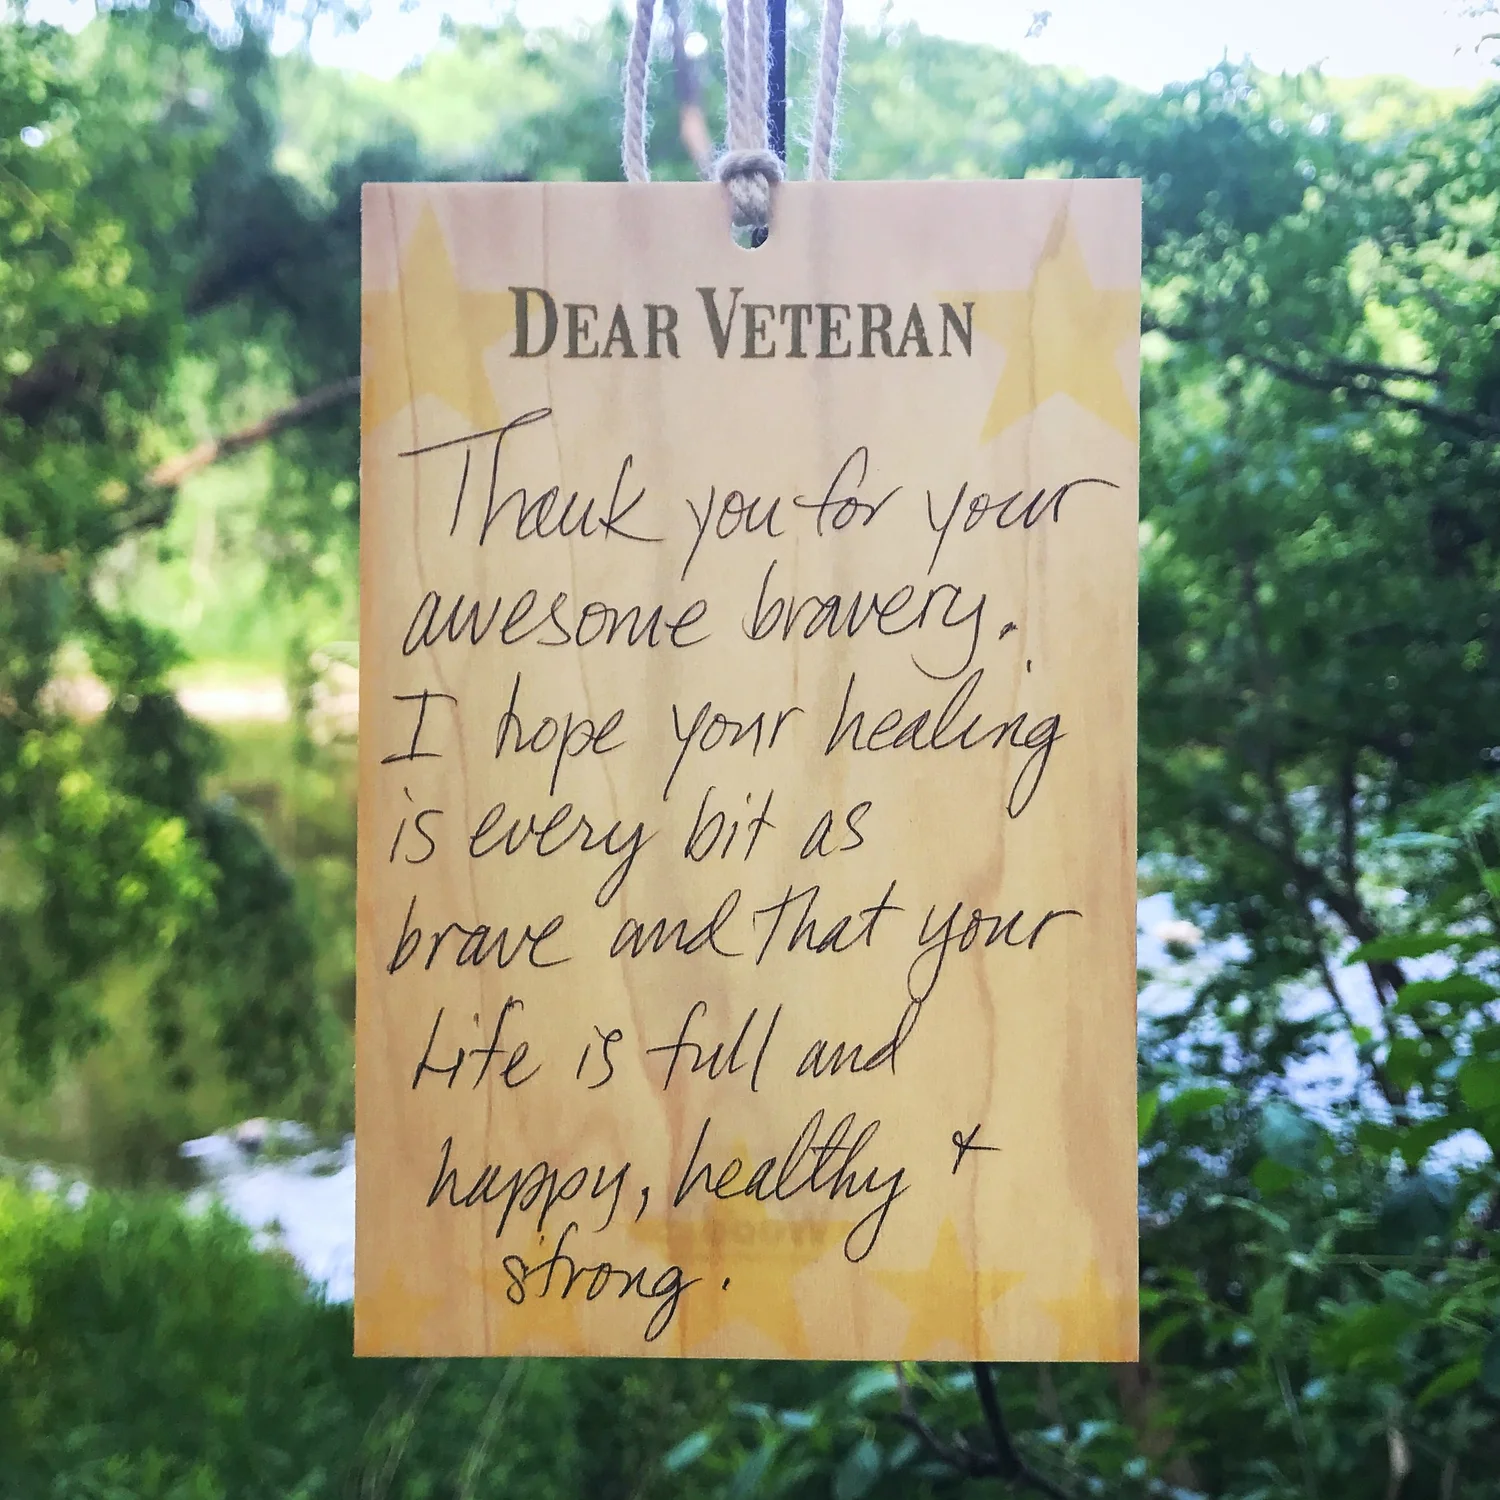 DEAR VETERAN
Thank you for your
awesome bravery.
I hope your healing
is every bit as
brave and that your
Life is full and
happy, healthy +
strong.